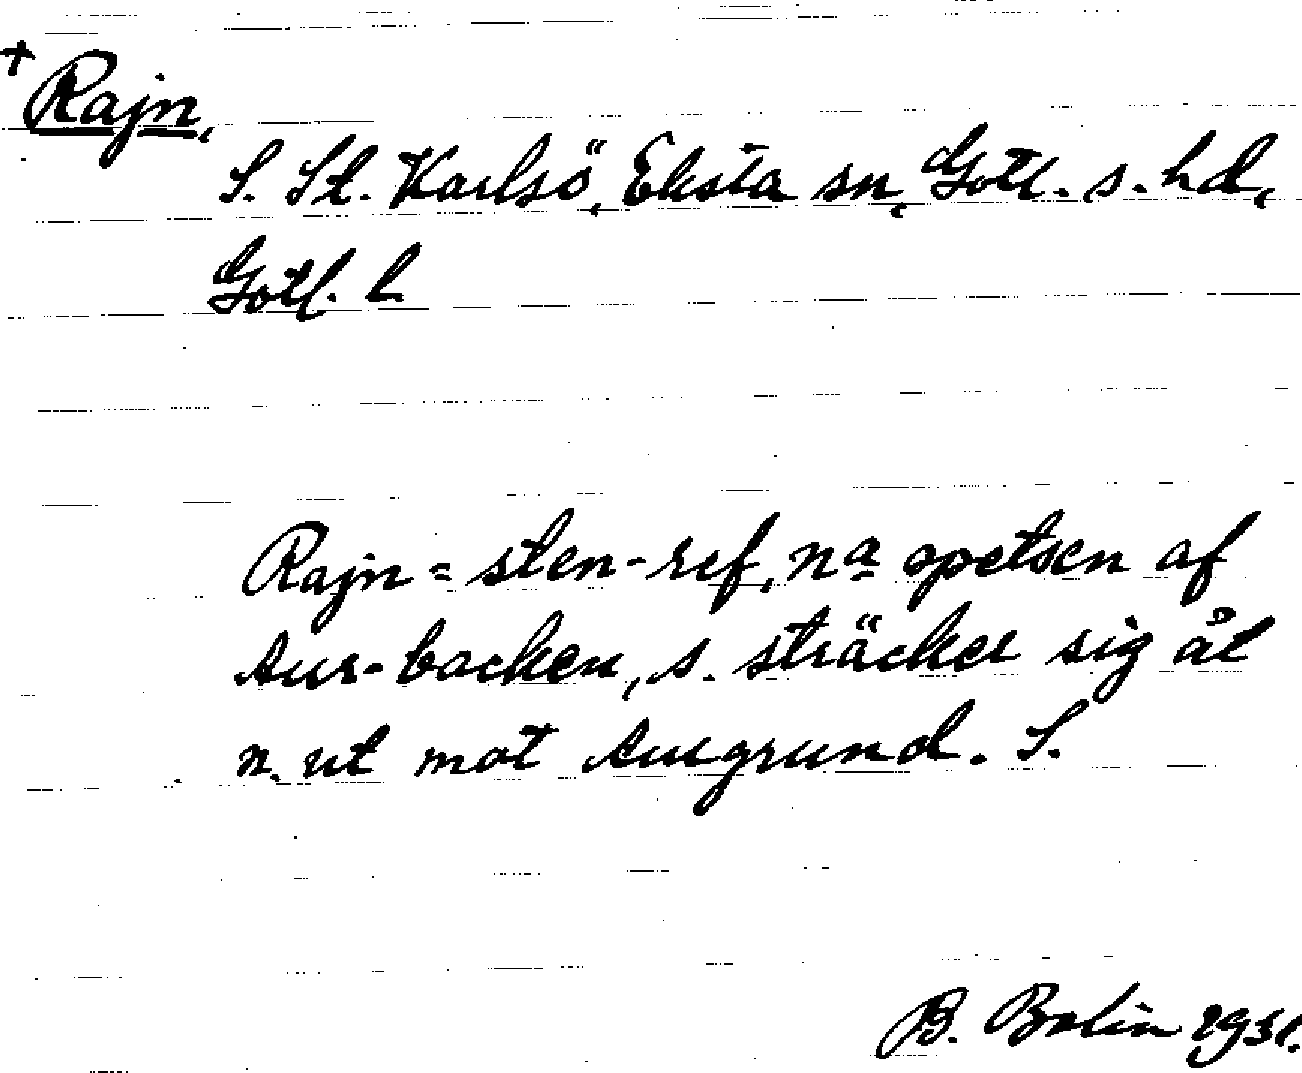 + Rajn,
S. St. Karlsö, Eksta sn, Gotl. s. hd,
Gotl. l.
Rajn = sten-ref, na spetsen af
Aur-backen, s. sträcker sig åt
n. ut mot Aurgrund. S.
B. Bolin 1931.